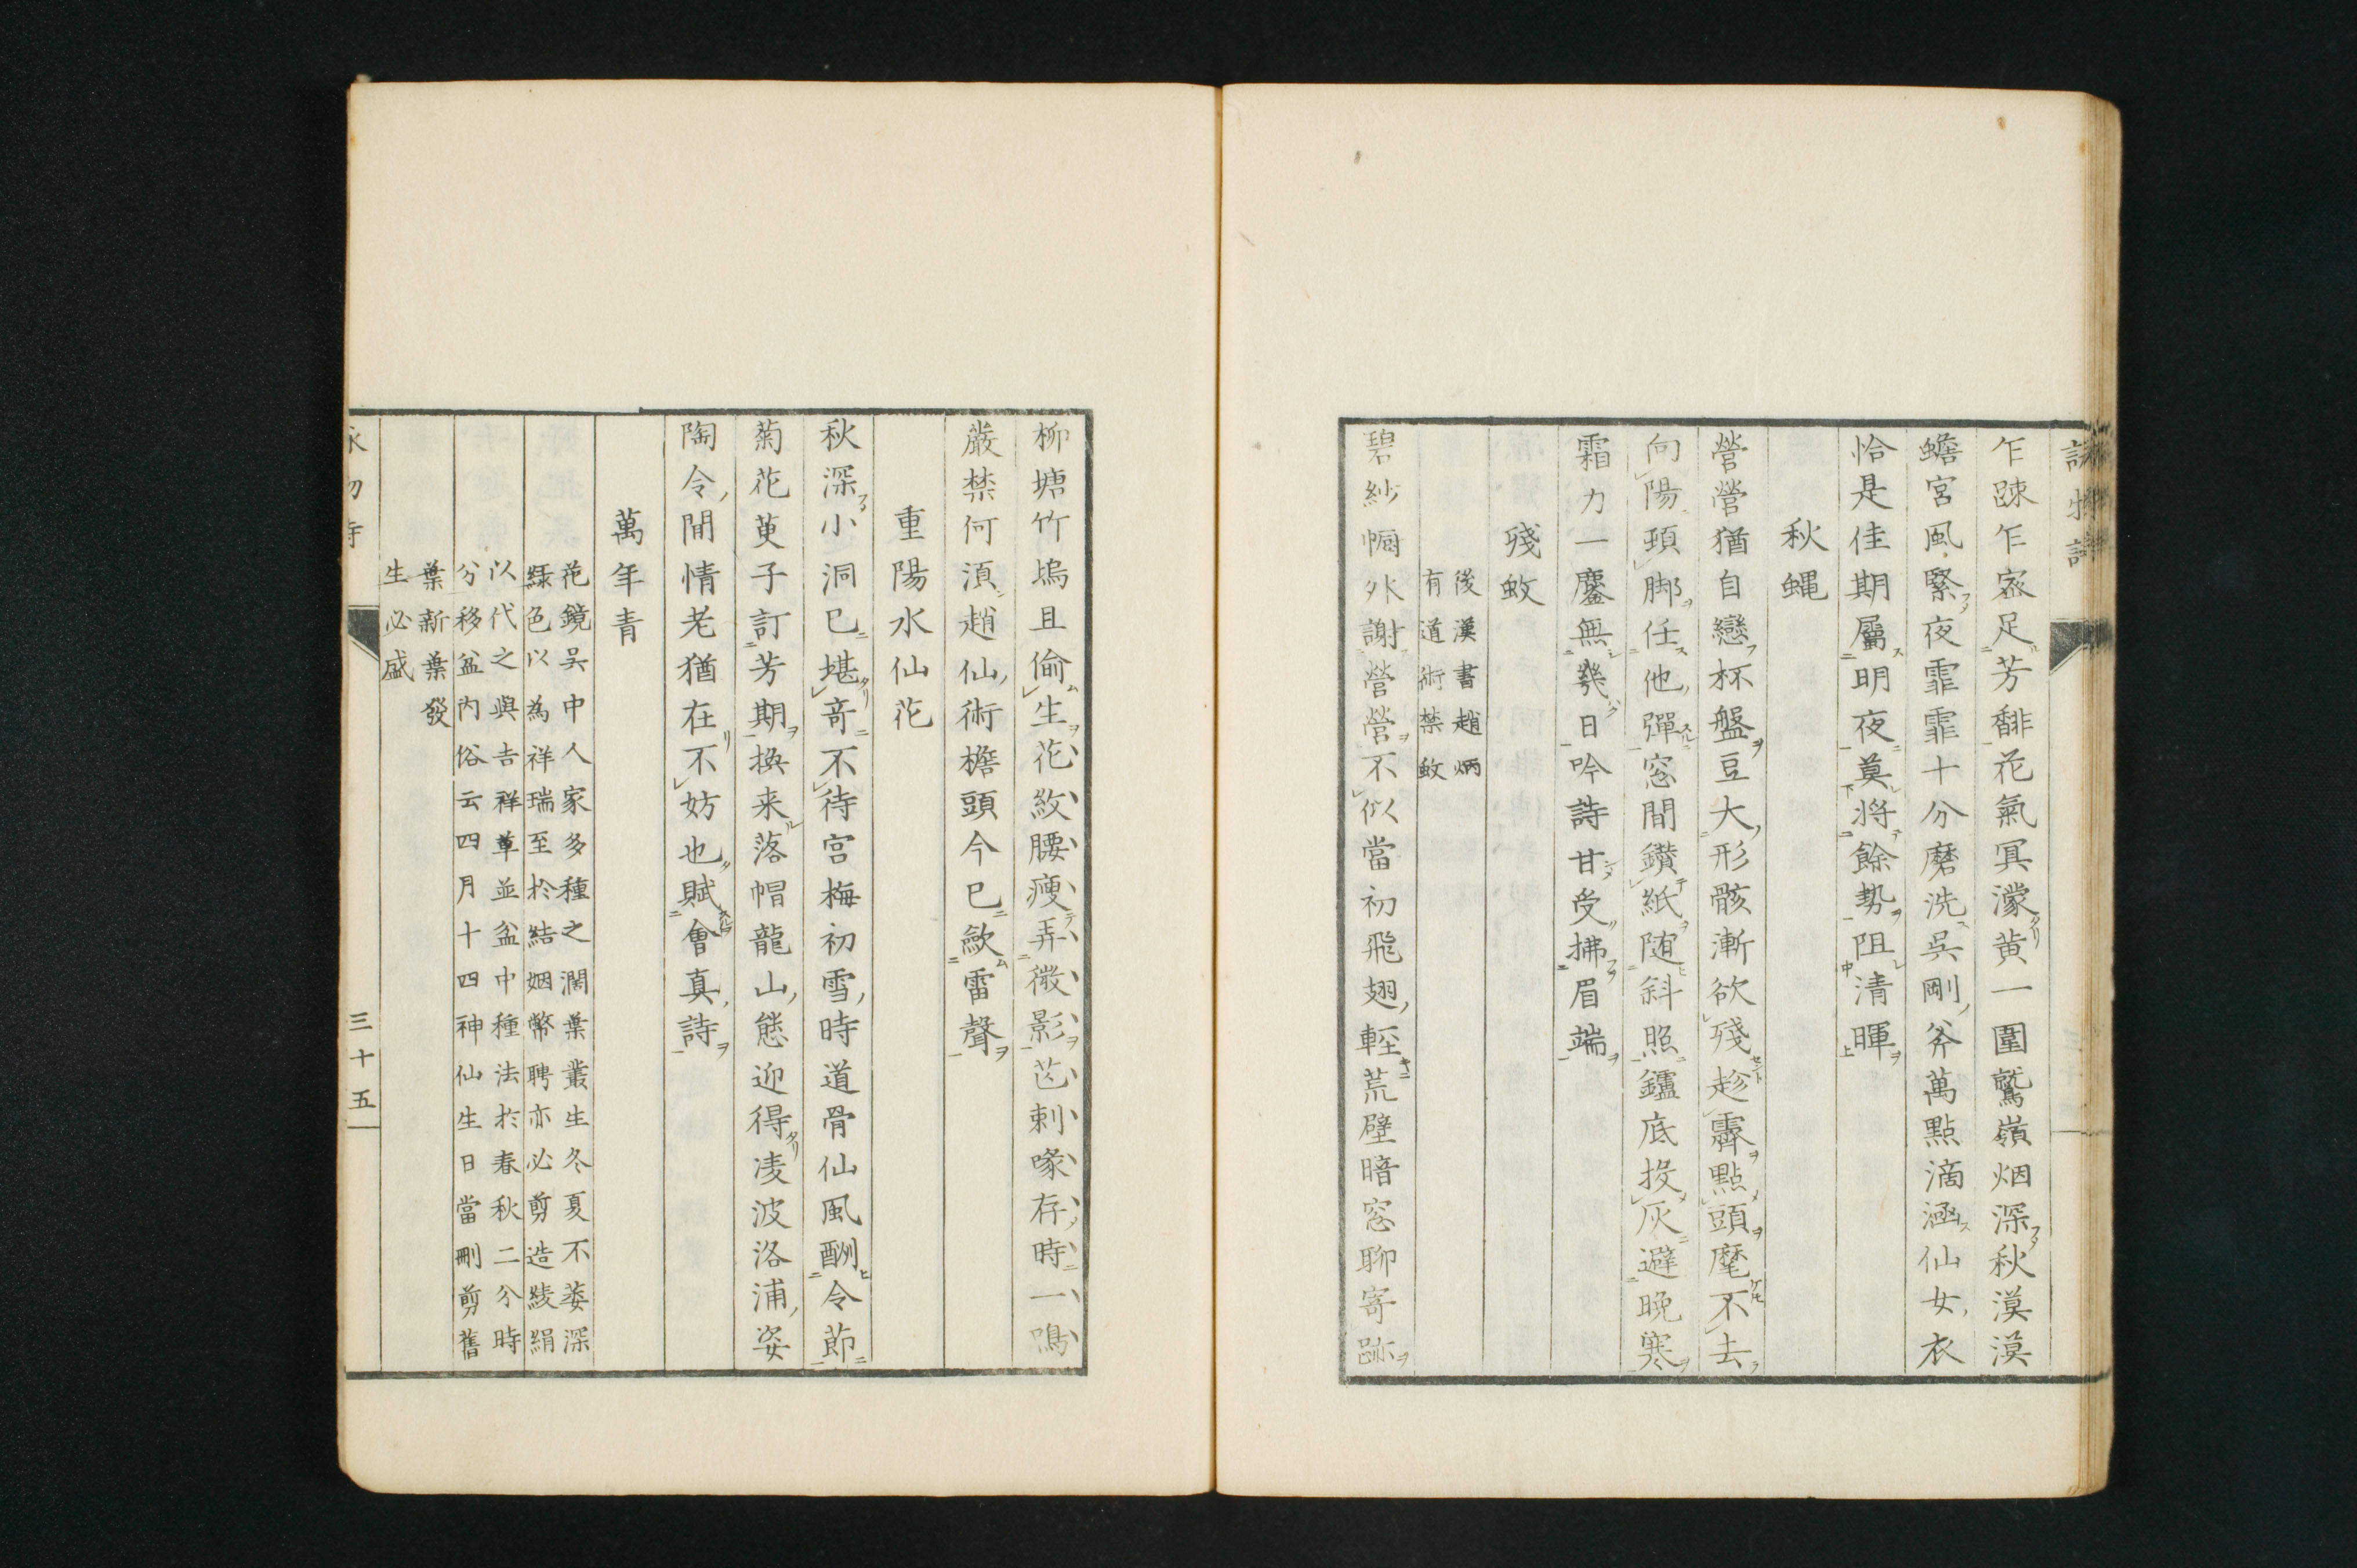 乍踈乍宻足芳馡花氣㝠濛黄一圍鷲嶺烟深秋漠漠
蟾宮風緊夜霏霏十分磨洗呉剛斧萬點滴涵仙女衣
恰是佳期屬明夜莫將餘勢阻清暉
秋蠅
營營猶自戀杯盤豆大形骸漸欲殘趁霽點頭麾不去
向陽頊脚任他彈窓間鑚紙随斜照鑪底投灰避晩寒
霜力一鏖無幾日吟詩甘受拂眉端
殘蚊
後漢書趙炳
有道術禁蚊
碧紗幮外謝營營不似當初飛翅輕荒壁暗窓聊寄跡
柳塘竹塢且偷生花紋腰瘦弄微影芒刺喙存時一鳴
嚴禁何湏趙仙術檐頭今已歛雷聲
重陽水仙花
秋深小洞已堪竒不待宮梅初雪時道骨仙風酬令節
菊花萸子訂芳期換来落帽龍山態迎得凌波洛浦姿
陶令間情老猶在不妨也賦會真詩
萬年青
花鏡呉中人家多種之濶葉叢生冬夏不萎深
緑色以為祥瑞至於結姻幣聘亦必剪造綾絹
以代之與吉祥草並盆中種法於春秋二分時
分移盆内俗云四月十四神仙生日當刪剪舊
葉新葉發
生必盛
三十五